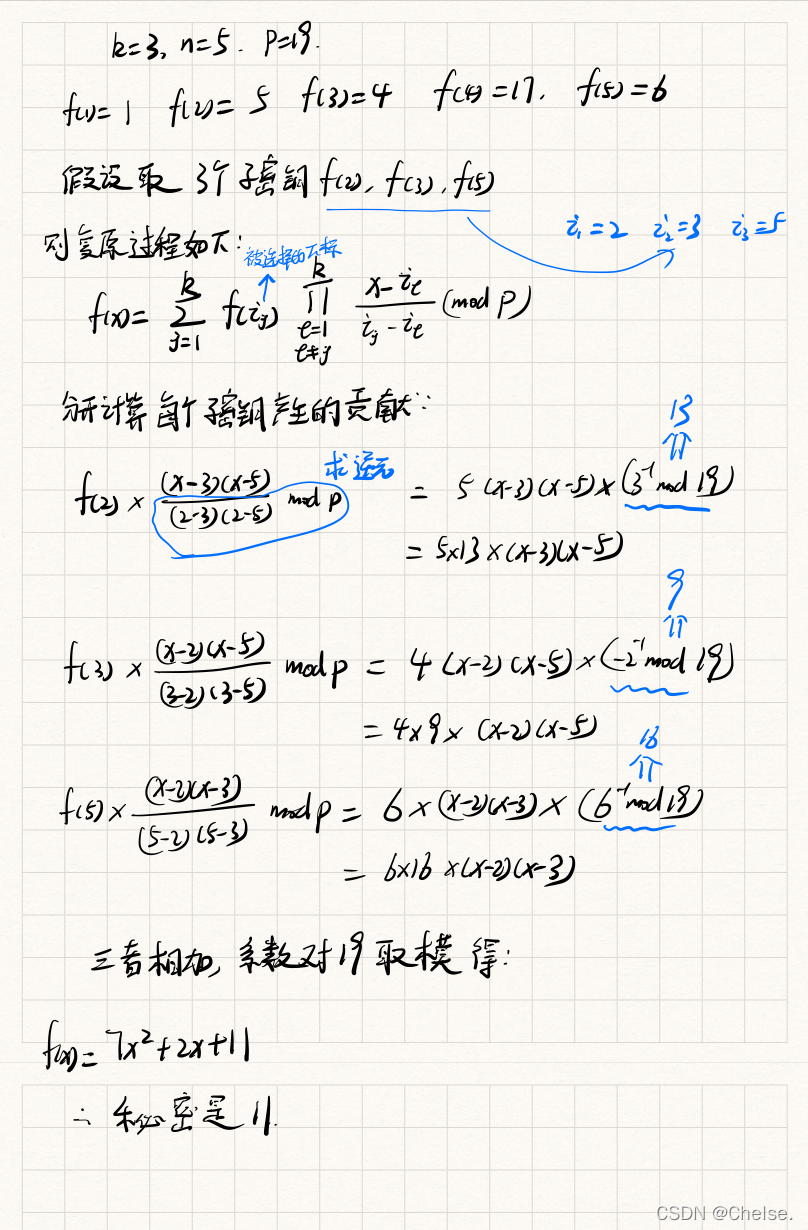 k=3, n=5. p=19.
f(1)=1 f(2)=5 f(3)=4 f(4)=17, f(5)=6
假设取 3个子密钥 f(2), f(3), f(5)
i₁=2 i₂=3 i₃=5
则复原过程如下:
被选择的下标
f(x)= ∑_{j=1}^{k} f(i_j) ∏_{l=1, l≠j}^{k} (x-i_l)/(i_j-i_l) (mod p)
分开计算每个子密钥产生的贡献:
求逆元
13
f(2) × (x-3)(x-5)/(2-3)(2-5) mod p = 5(x-3)(x-5)×(3⁻¹ mod 19)
= 5×13×(x-3)(x-5)
9
f(3) × (x-2)(x-5)/(3-2)(3-5) mod p = 4(x-2)(x-5)×(-2⁻¹ mod 19)
= 4×9×(x-2)(x-5)
16
f(5) × (x-2)(x-3)/(5-2)(5-3) mod p = 6×(x-2)(x-3)×(6⁻¹ mod 19)
= 6×16×(x-2)(x-3)
三者相加, 系数对19取模得:
f(x)= 7x²+2x+11
∴ 秘密是 11.
CSDN @Chelse.